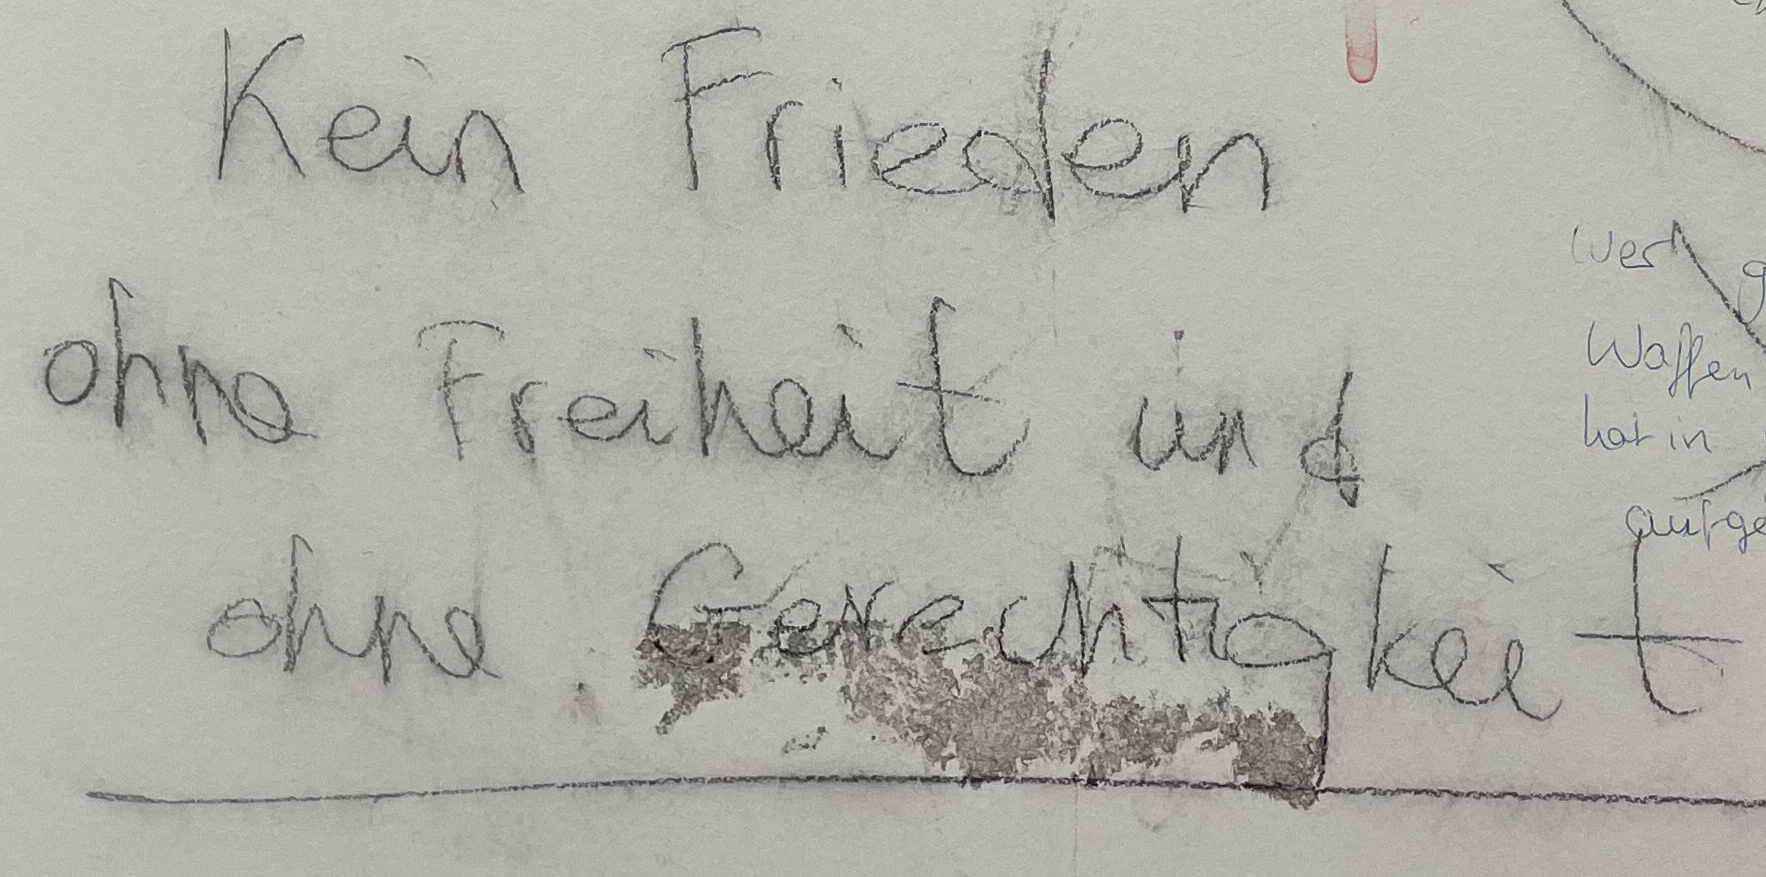 Kein Frieden
ohne Freiheit und
ohne Gerechtigkeit
Wer
Waffen
hat in